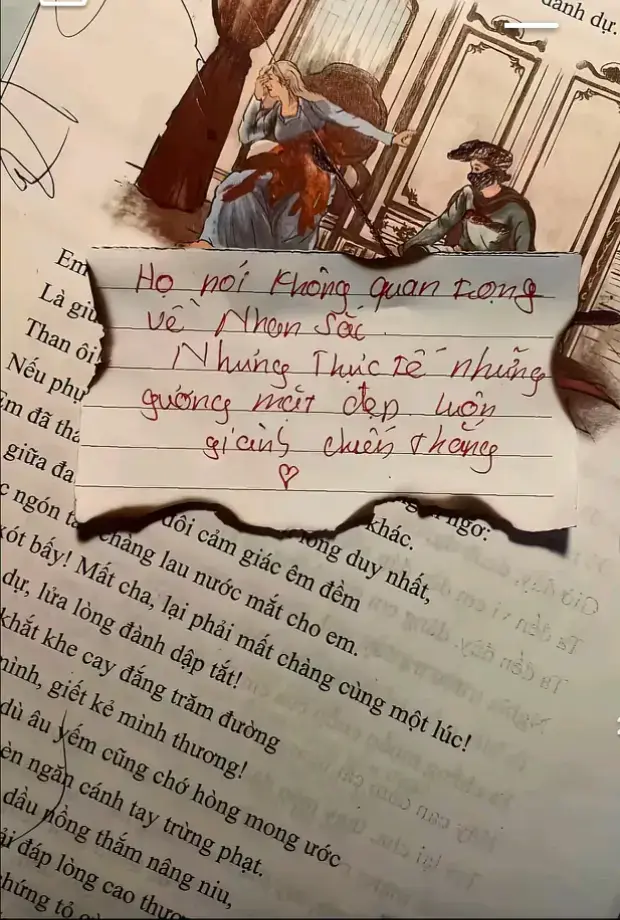 danh dự.
Họ nói không quan trọng
về Nhan Sắc.
Nhưng Thực tế những
gương mặt đẹp luôn
giành chiến thắng
Em
Là giu
Than ôi!
Nếu phụ
Em đã tha
giữa đa
ngơ:
c ngón ta
khác.
duy nhất,
đôi cảm giác êm đềm
chàng lau nước mắt cho em.
xót bấy! Mất cha, lại phải mất chàng cùng một lúc!
dự, lửa lòng đành dập tắt!
khắt khe cay đắng trăm đường
mình, giết kẻ mình thương!
dù âu yếm cũng chớ hòng mong ước
èn ngăn cánh tay trừng phạt.
dầu nồng thắm nâng niu,
ải đáp lòng cao thượ
chứng tỏ